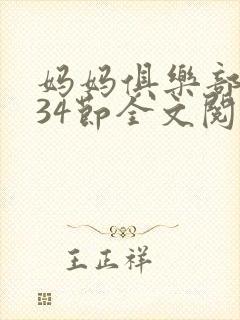 妈妈俱樂部
34節全文閱
王正祥